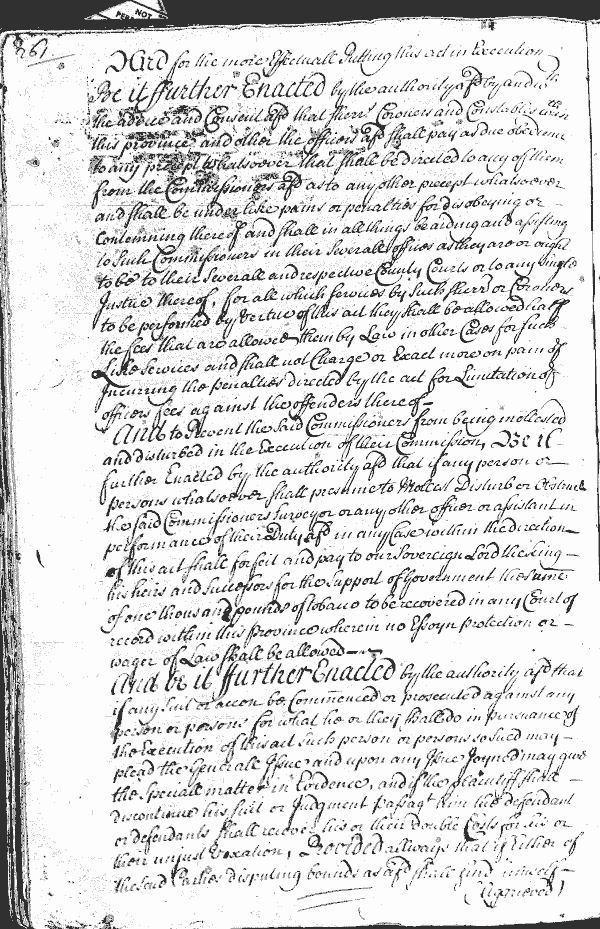 NOT
261
And for the more Effectuall Putting this act in Execution
Be it ffurther Enacted by the authority afd by and wth
the advice and Consent afd that Sherrs Coroners and Constables wthin
this province and other the officers afd shall pay as due obedience
to any precept whatsoever that shall be directed to any of them
from the Commissioners afd as to any other precept whatsoever
and shall be under like pains or penalties for disobeying or
Contemning thereof and shall in all things be aiding and assisting
to such Commissioners in their Severall offices as they are or ought
to be to their Severall and respective County Courts or to any single
Justice thereof, for all which services by such Sherrs or Coroners
to be performed by vertue of this act they shall be allowed half
the fees that are allowed them by Law in other Cases for such
Like services and shall not Charge or Exact more on pain of
Incurring the penalties directed by the act for Limitation of
officers fees against the offenders thereof
And to Prevent the said Commissioners from being mollested
and disturbed in the Execution of their Commission, Be it
further Enacted by the authority afd that if any person or
persons whatsoever shall presume to Molest Disturb or Obstruct
the said Commissioners Surveyor or any other officer or assistant in
performance of their Duty afd in any Case within the direction
of this act shall forfeit and pay to our Sovereign Lord the King
his heirs and successors for the support of Government the sume
of one thousand pounds of tobacco to be recovered in any Court of
record within this Province wherein no Essoyn protection or
wager of Law shall be allowed
And be it ffurther Enacted by the authority afd that
if any suit or accon be Commenced or prosecuted against any
person or persons for what he or they shall do in pursuance of
the Execution of this act such person or persons so sued may
plead the Generall Issue and upon any Issue Joyned may give
the speciall matter in Evidence, and if the plaintiff shall
discontinue his suit or Judgment Pass agt him the defendant
or defendants shall recover his or their double Costs for his or
their unjust vexation, Provided always that if Either of
the said Parties disputing bounds as afd shall find himself
(Aggrieved)